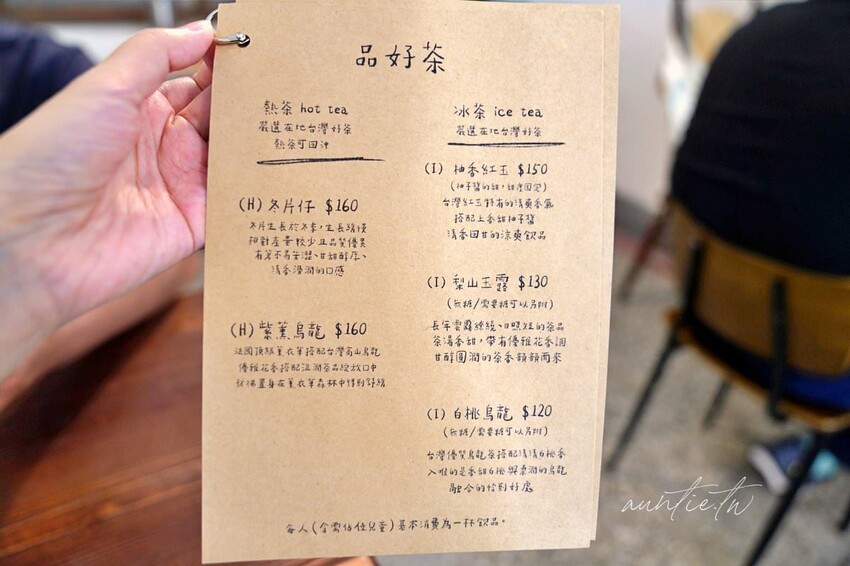 品好茶
熱茶 hot tea
嚴選在地台灣好茶
熱茶可回沖
(H) 冬片仔 $160
冬片生長於冬季,生長緩慢
相對產量較少且品質優異
有著不易苦澀、甘甜醇厚、
清香滑潤的口感
(H) 紫薰烏龍 $160
法國頂級薰衣草搭配台灣高山烏龍
優雅花香搭配溫潤茶品綻放口中
彷彿置身在薰衣草森林中特別舒緩
冰茶 ice tea
嚴選在地台灣好茶
(I) 柚香紅玉 $150
(柚子醬的甜,甜度固定)
台灣紅玉特有的清爽香氣
搭配上香甜柚子醬
清香回甘的涼爽飲品
(I) 梨山玉露 $130
(無糖/需要糖可以另附)
長年雲霧繚繞、日照短的茶品
茶湯香甜,帶有優雅花香調
甘醇圓潤的茶香韻韻而來
(I) 白桃烏龍 $120
(無糖/需要糖可以另附)
台灣優質烏龍茶搭配清清白桃香
入喉的是香甜白桃與柔潤的烏龍
融合的恰到好處
每人(含需佔位兒童)基本消費為一杯飲品。
auntie.tw